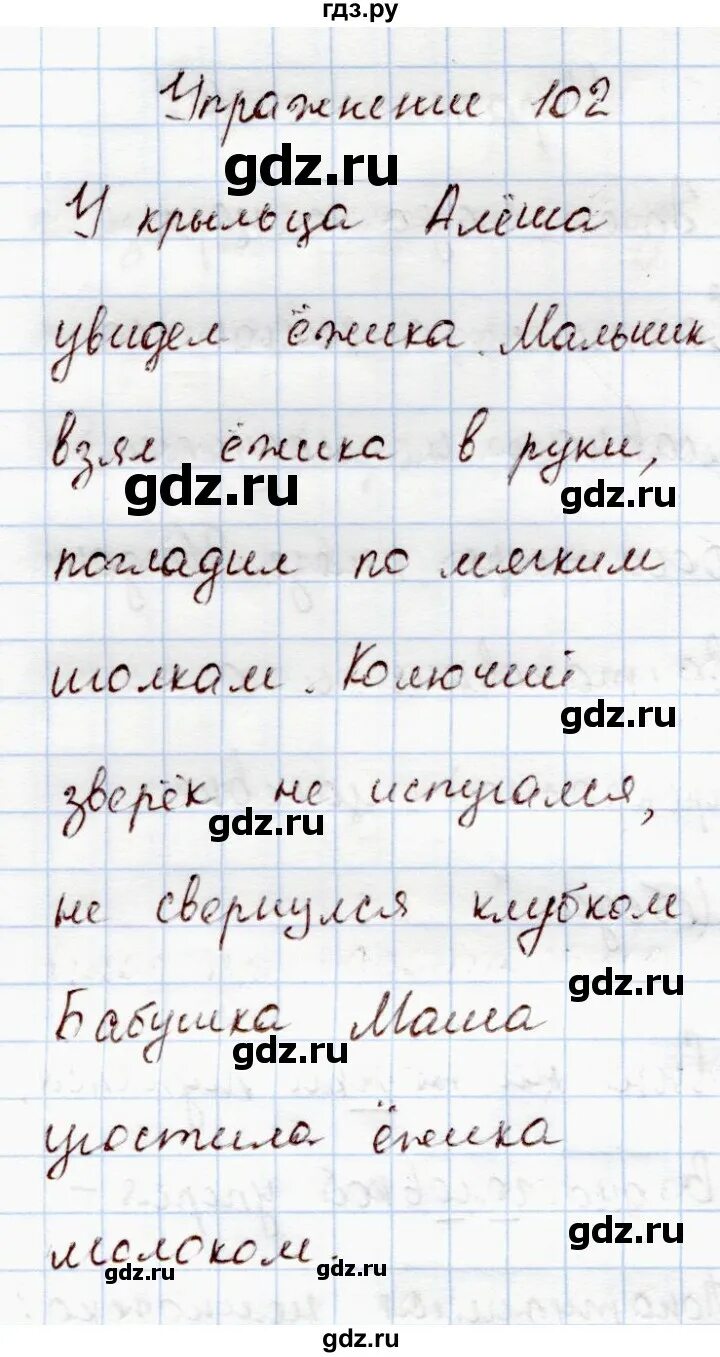 гдз.ру
Упражнение 102
gdz.ru
У крыльца Алёша
увидел ёжика. Мальчик
взял ёжика в руки,
gdz.ru gdz.ru
погладил по мягким
иголкам. Колючий
gdz.ru
зверёк не испугался,
gdz.ru
не свернулся клубком.
gdz.ru
Бабушка Маша
gdz.ru
угостила ёжика
молоком.
gdz.ru gdz.ru
gdz.ru